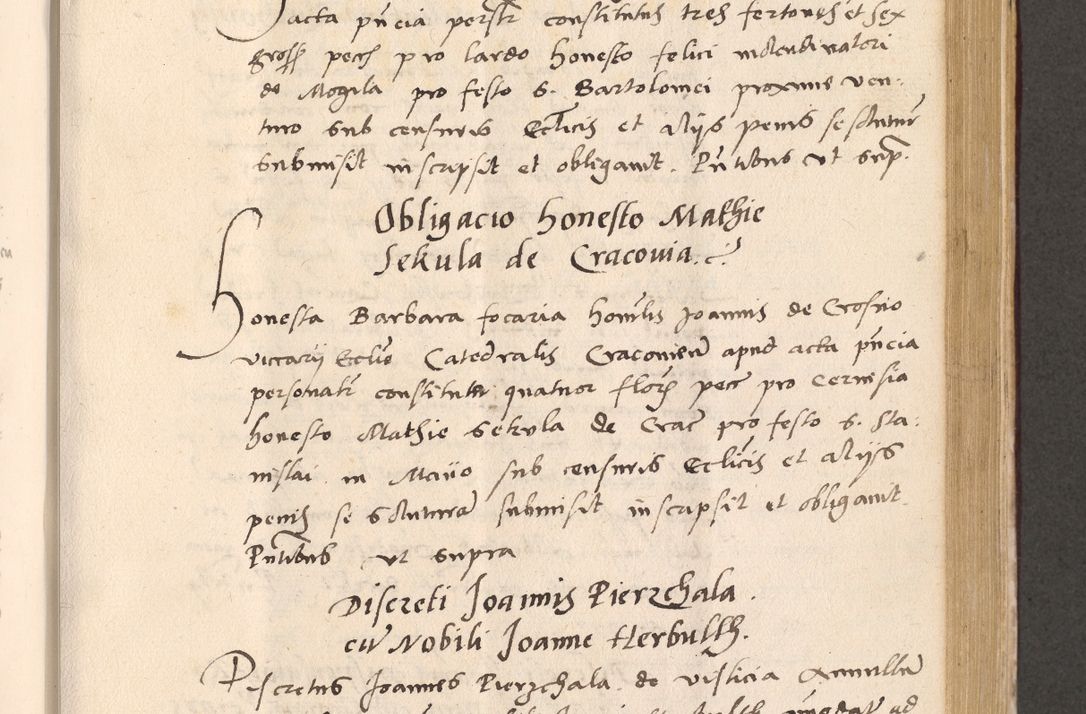 acta pñcia personatr constitutus tres fertones et sex
gross pecc pro lardo honesto felici molendinatori
de Mogila pro festo S. Bartolomei proxime ven-
turo sub censuris Ecclicis et alijs penis se soluturum
submisit inscripsit et obligauit. Pñtibus ut sup.
Obligacio honesto Mathie
Sekula de Cracouia.
Honesta Barbara focaria honlis Joannis de Crosno
viccarij Ecclie Catedralis Cracouien apud acta pñcia
personatr constituta quatuor floren pecc pro ceruisia
honesto Mathie Sekula de Crac pro festo S. Sta:
nislai in Maio sub censuris Ecclicis et alijs
penis se soluturam submisit inscripsit et obligauit
Pñtibus ut supra
Discreti Joannis Pierzchala.
cu Nobili Joanne Herbulth.
Discretus Joannes Pierzchala de Vislicia
ad